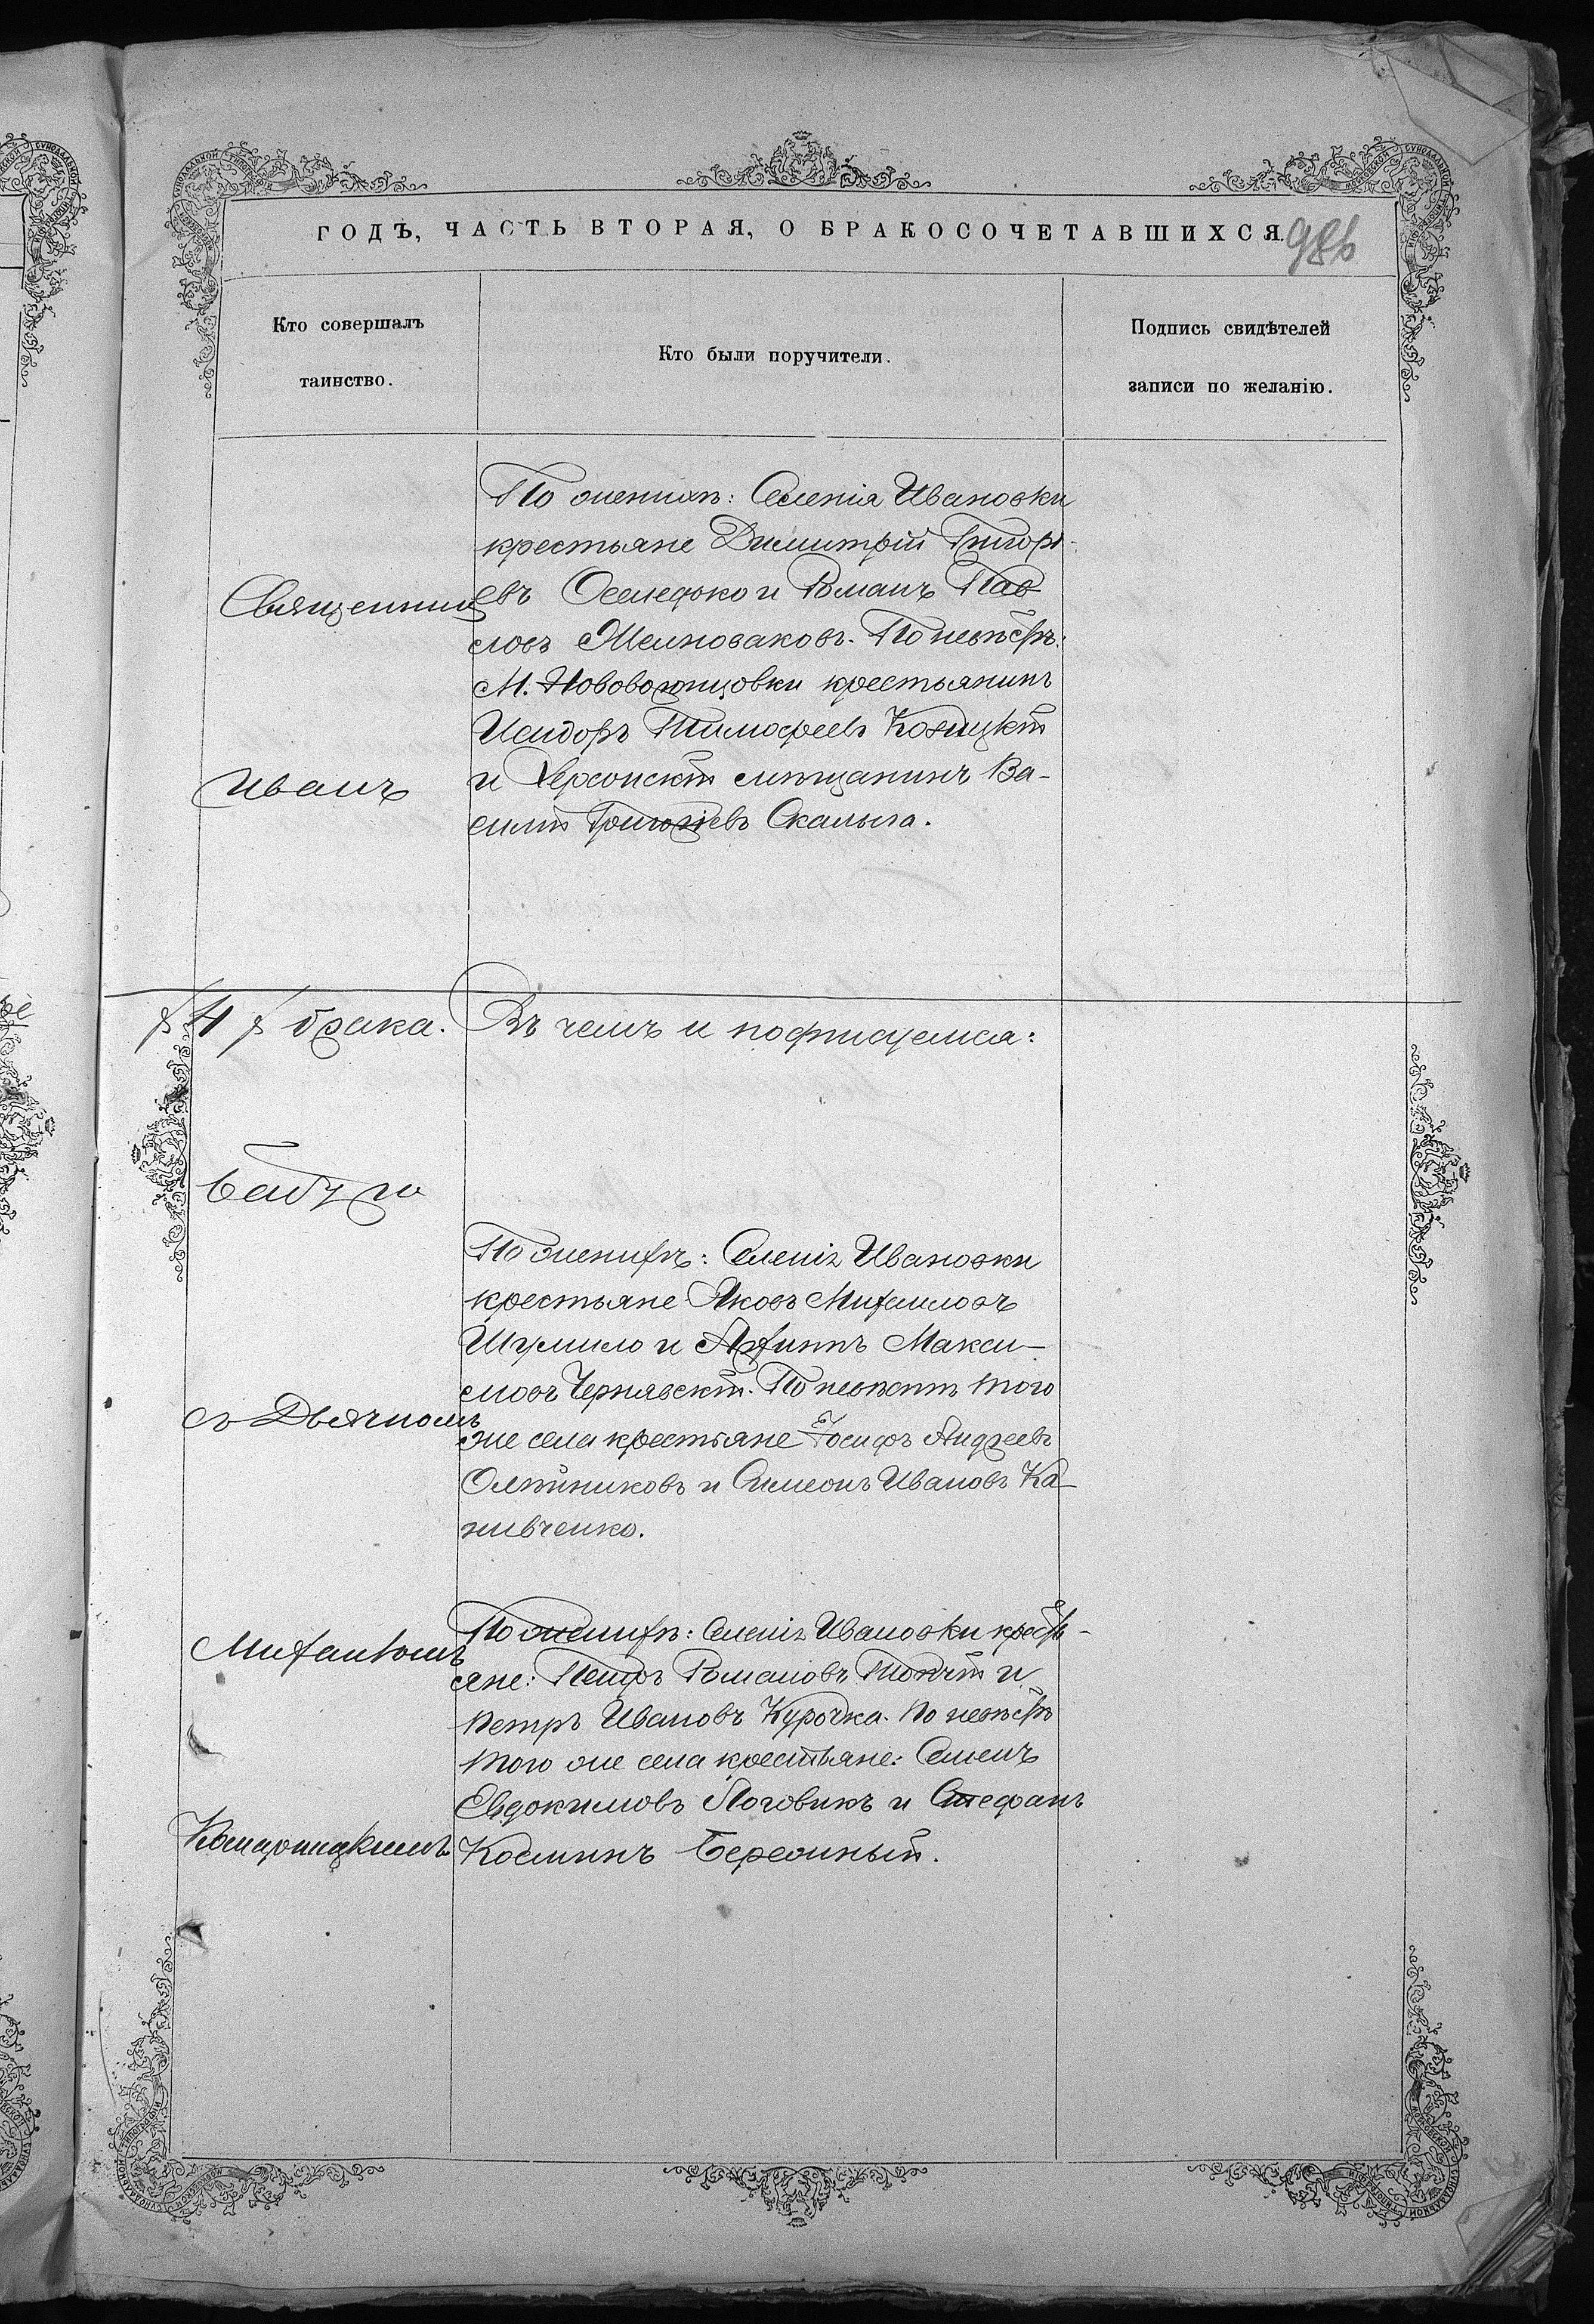 ГОДЪ, ЧАСТЬ ВТОРАЯ, О БРАКОСОЧЕТАВШИХСЯ.
Кто совершалъ
таинство.
Кто были поручители.
Подпись свидѣтелей
записи по желанію.
По женихѣ: Селенія Ивановки
крестьяне Димитрій Григорі-
евъ Оселедько и Романъ Пав
ловъ Желноваковъ. По невѣстѣ:
М. Нововоронцовки крестьянинъ
Исидоръ Тимофеевъ Козицкій
и Херсонскій мѣщанинъ Ва-
силій Григоріевъ Скалыга.
Священник
Иванъ
4 брака. Въ чемъ и подписуемся:
По женихѣ: Селенія Ивановки
крестьяне Яковъ Михаиловъ
Шумило и Архипъ Макси-
мовъ Чернявскій. По невѣстѣ того
же села крестьяне Іосифъ Андреевъ
Олѣйниковъ и Симеонъ Ивановъ Ка-
нивченко.
съ Дьячкомъ
По женихѣ: Селенія Ивановки кресть-
яне: Петръ Романовъ и
Петръ Ивановъ Курочка. По невѣстѣ
того же села крестьяне: Семенъ
Евдокимовъ Логовикъ и Стефанъ
Косминъ Бережный.
Михаиломъ
Комарницкимъ